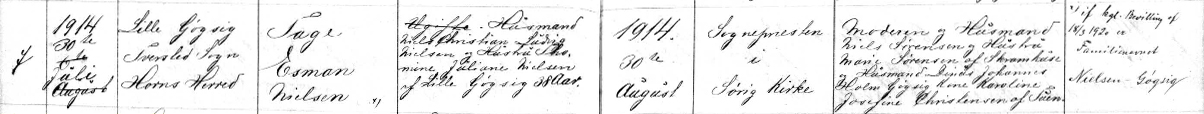 7
1914
30te
Juli
August
Lille Gøgsig
Tversted Sogn
Horns Herred
Tage
Esman
Nielsen *)
Ugifte. Husmand
Niels Christian Ludvig
Nielsen og Hustru Tho-
mine Juliane Nielsen
af Lille Gøgsig 38 Aar.
1914.
30te
August
Sognepræsten
i
Sørig Kirke
Moderen og Husmand
Niels Sørensen og Hustru
Marie Sørensen af Skramhuse
Husmand Jens Johannes
Holm Gøgsig Kone Karoline
Josefine Christensen af Tuen
*) if. kgl. Bevilling af
18/3 1920 er
Familienavnet
Nielsen-Gøgsig